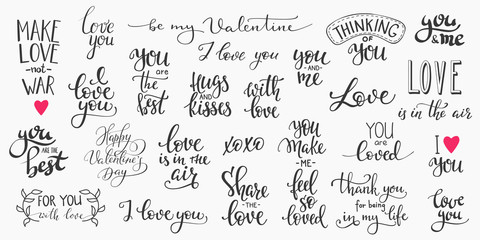 MAKE
LOVE
-not-
WAR
love
you
be my Valentine
I love you
THINKING
OF
You
you
& me
i
love
you
you
are
the
best
Hugs
AND
kisses
with
love
you
-AND-
me
Love
LOVE
is in the air
you
ARE THE
best
Happy
Valentine's
Day
love
is in the
air
xoxo
you
make
-ME-
feel
so
loved
YOU
are
loved
I
You
FOR YOU
with love
I love you
Share
-THE-
love
thank you
for being
in my life
love
you